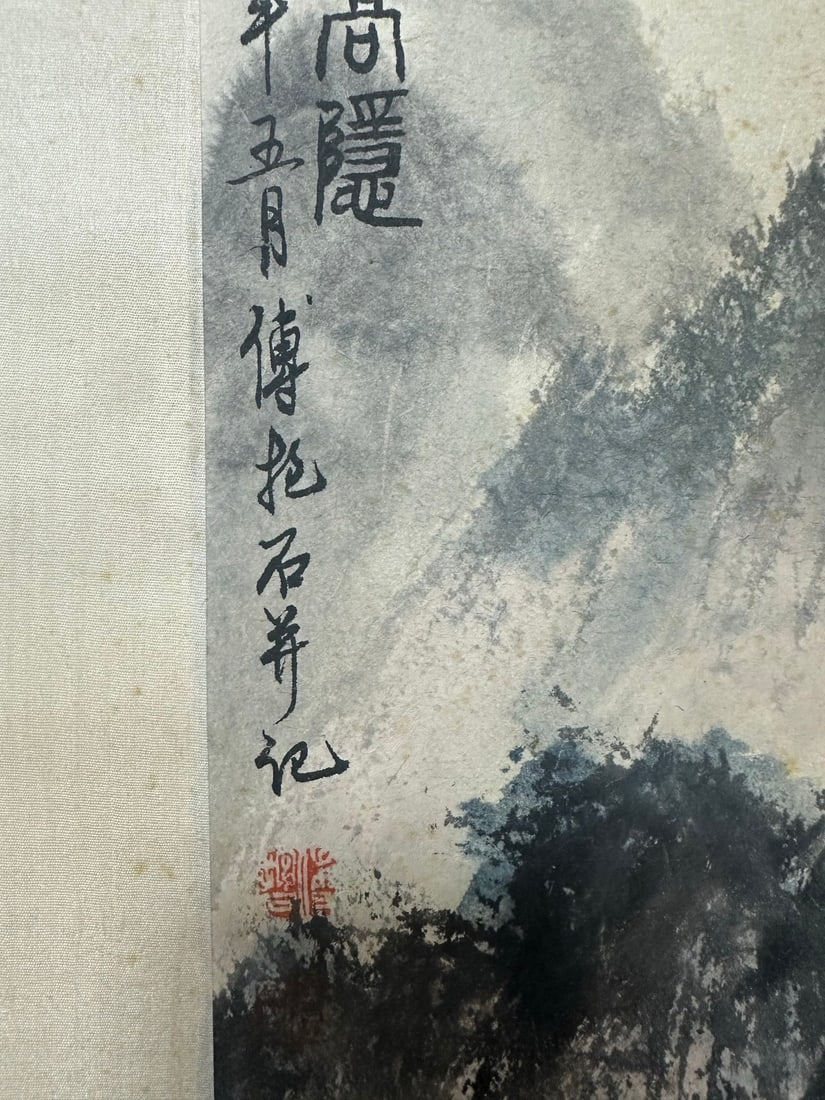 高隱
年五月傅抱石并记